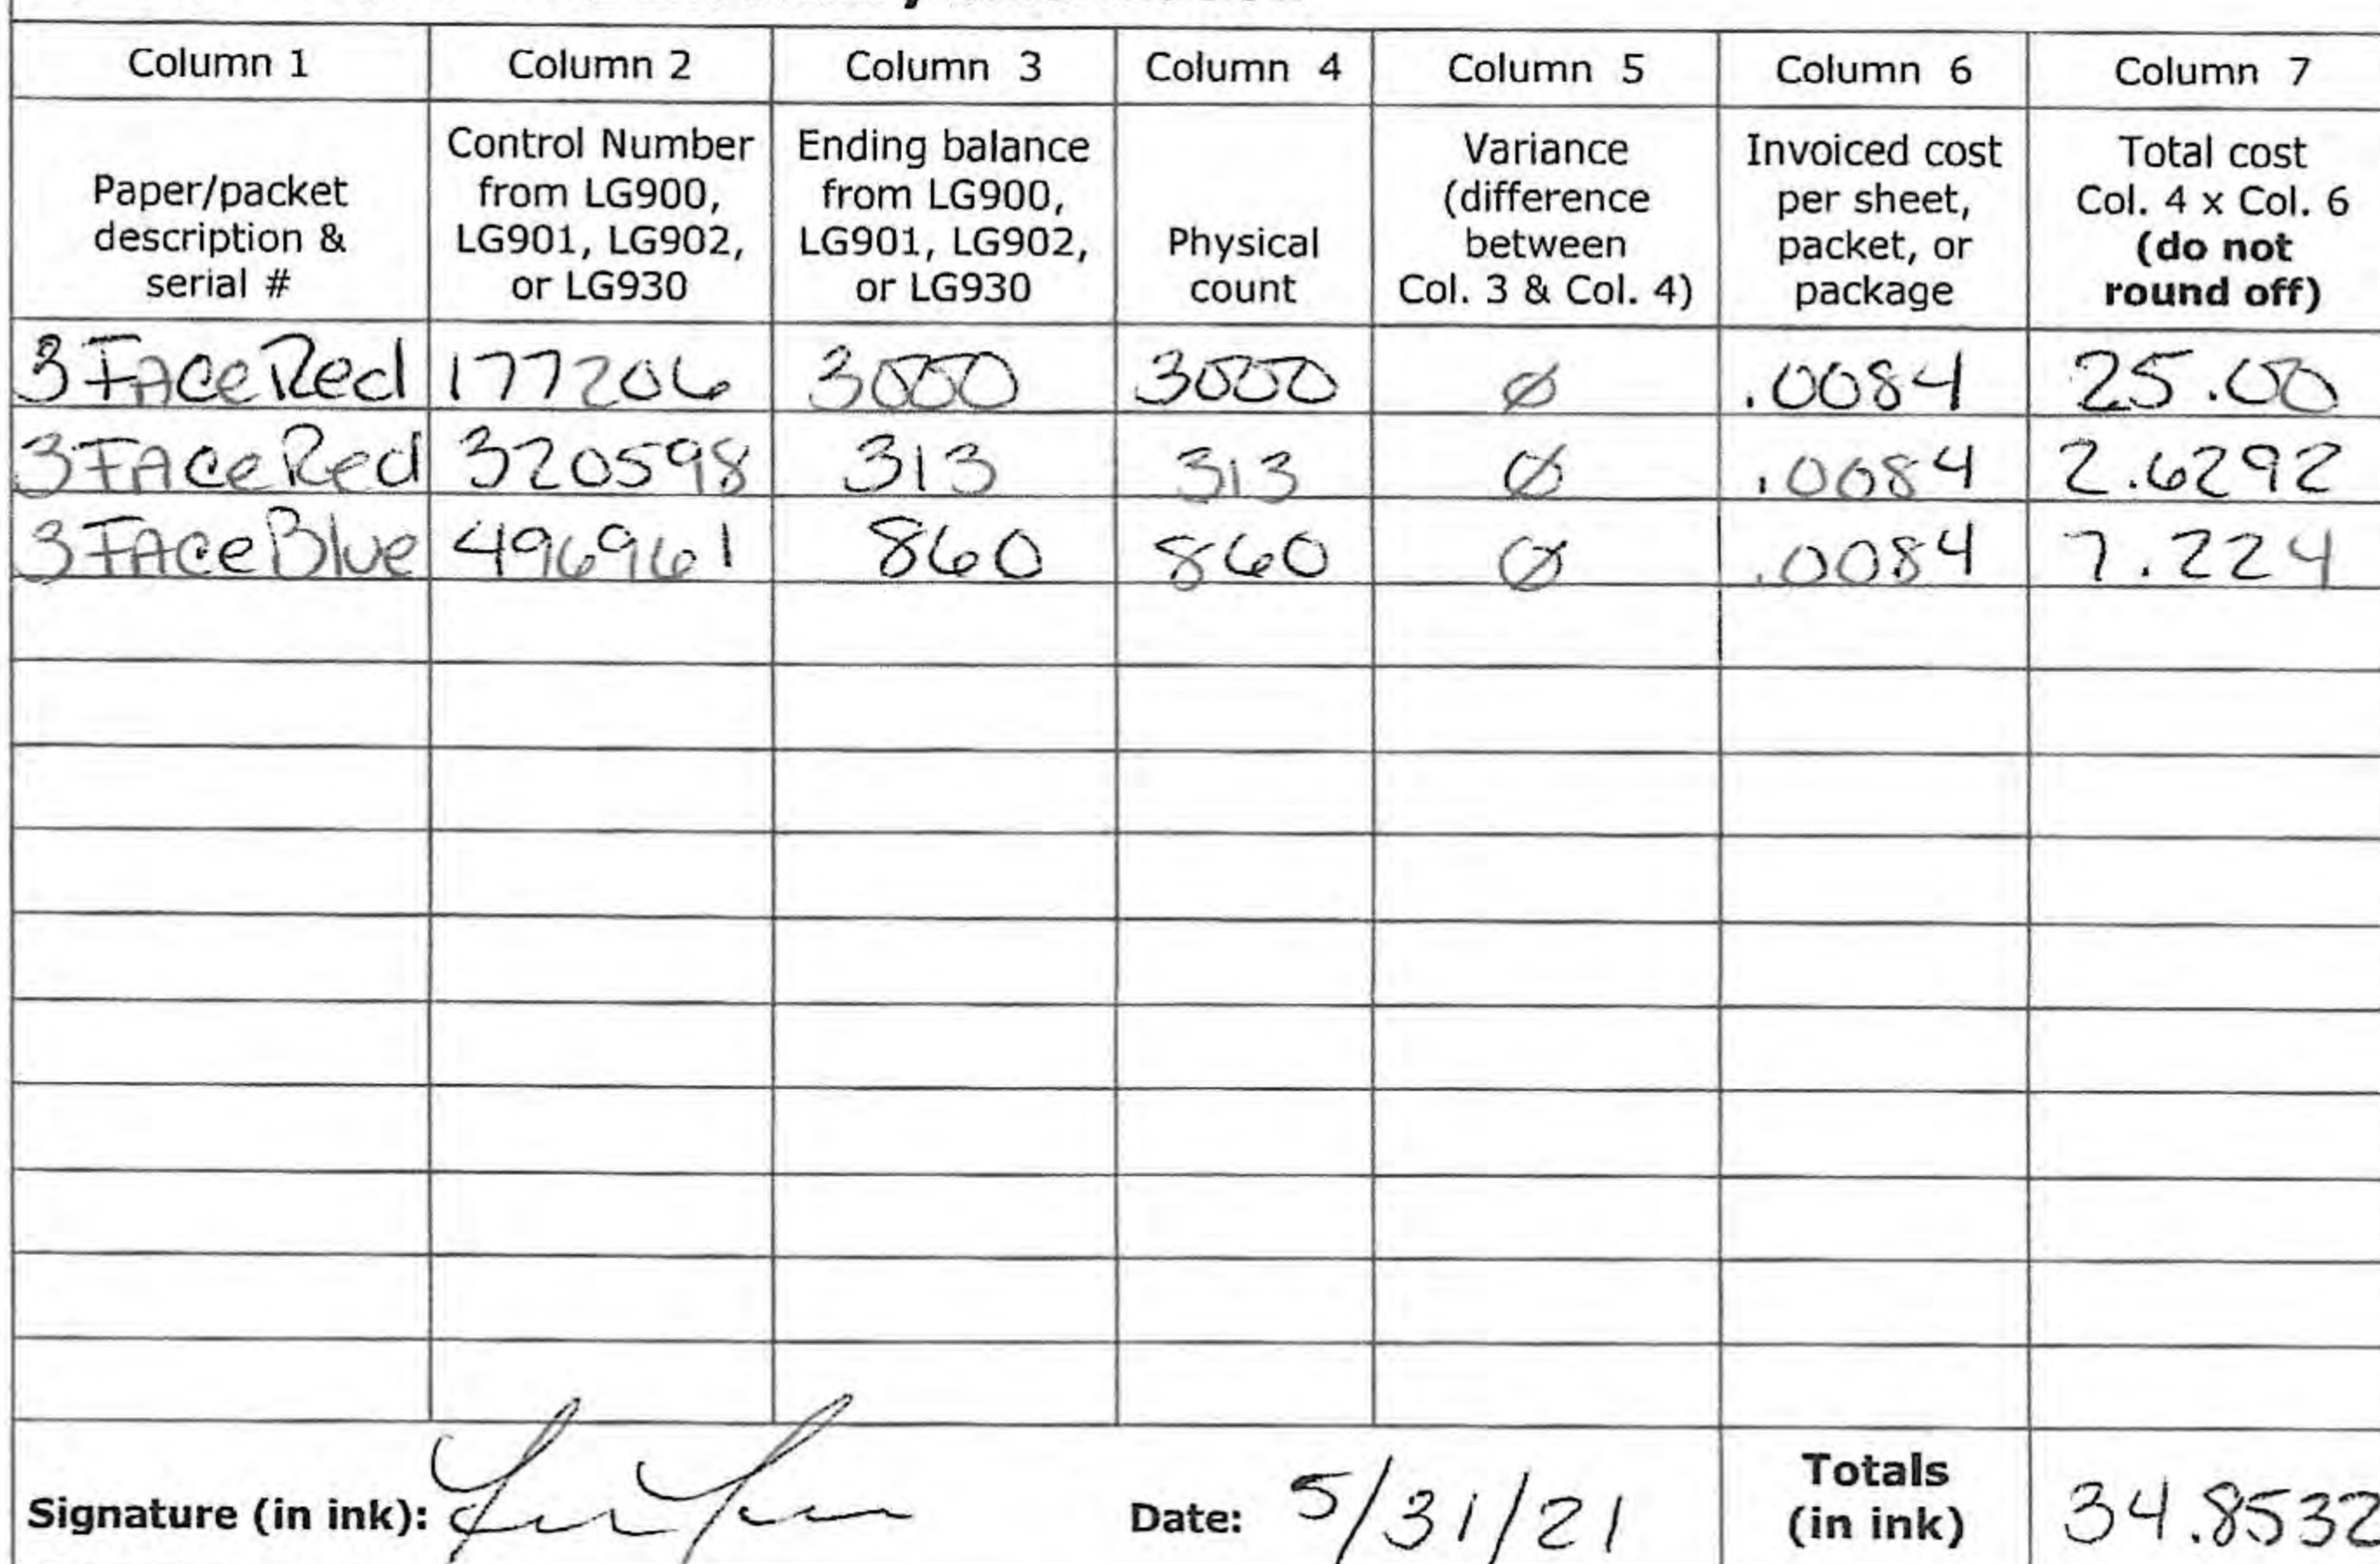 Column 1 Column 2 Column 3 Column 4 Column 5 Column 6 Column 7
Paper/packet description & serial #
Control Number from LG900, LG901, LG902, or LG930
Ending balance from LG900, LG901, LG902, or LG930
Physical count
Variance (difference between Col. 3 & Col. 4)
Invoiced cost per sheet, packet, or package
Total cost Col. 4 x Col. 6 (do not round off)
3 FAce Red 177206 3000 3000 Ø .0084 25.00
3 FAce Red 320598 313 313 Ø .0084 2.6292
3 FAce Blue 496961 860 860 Ø .0084 7.224
Signature (in ink): Date: 5/31/21 Totals (in ink) 34.8532